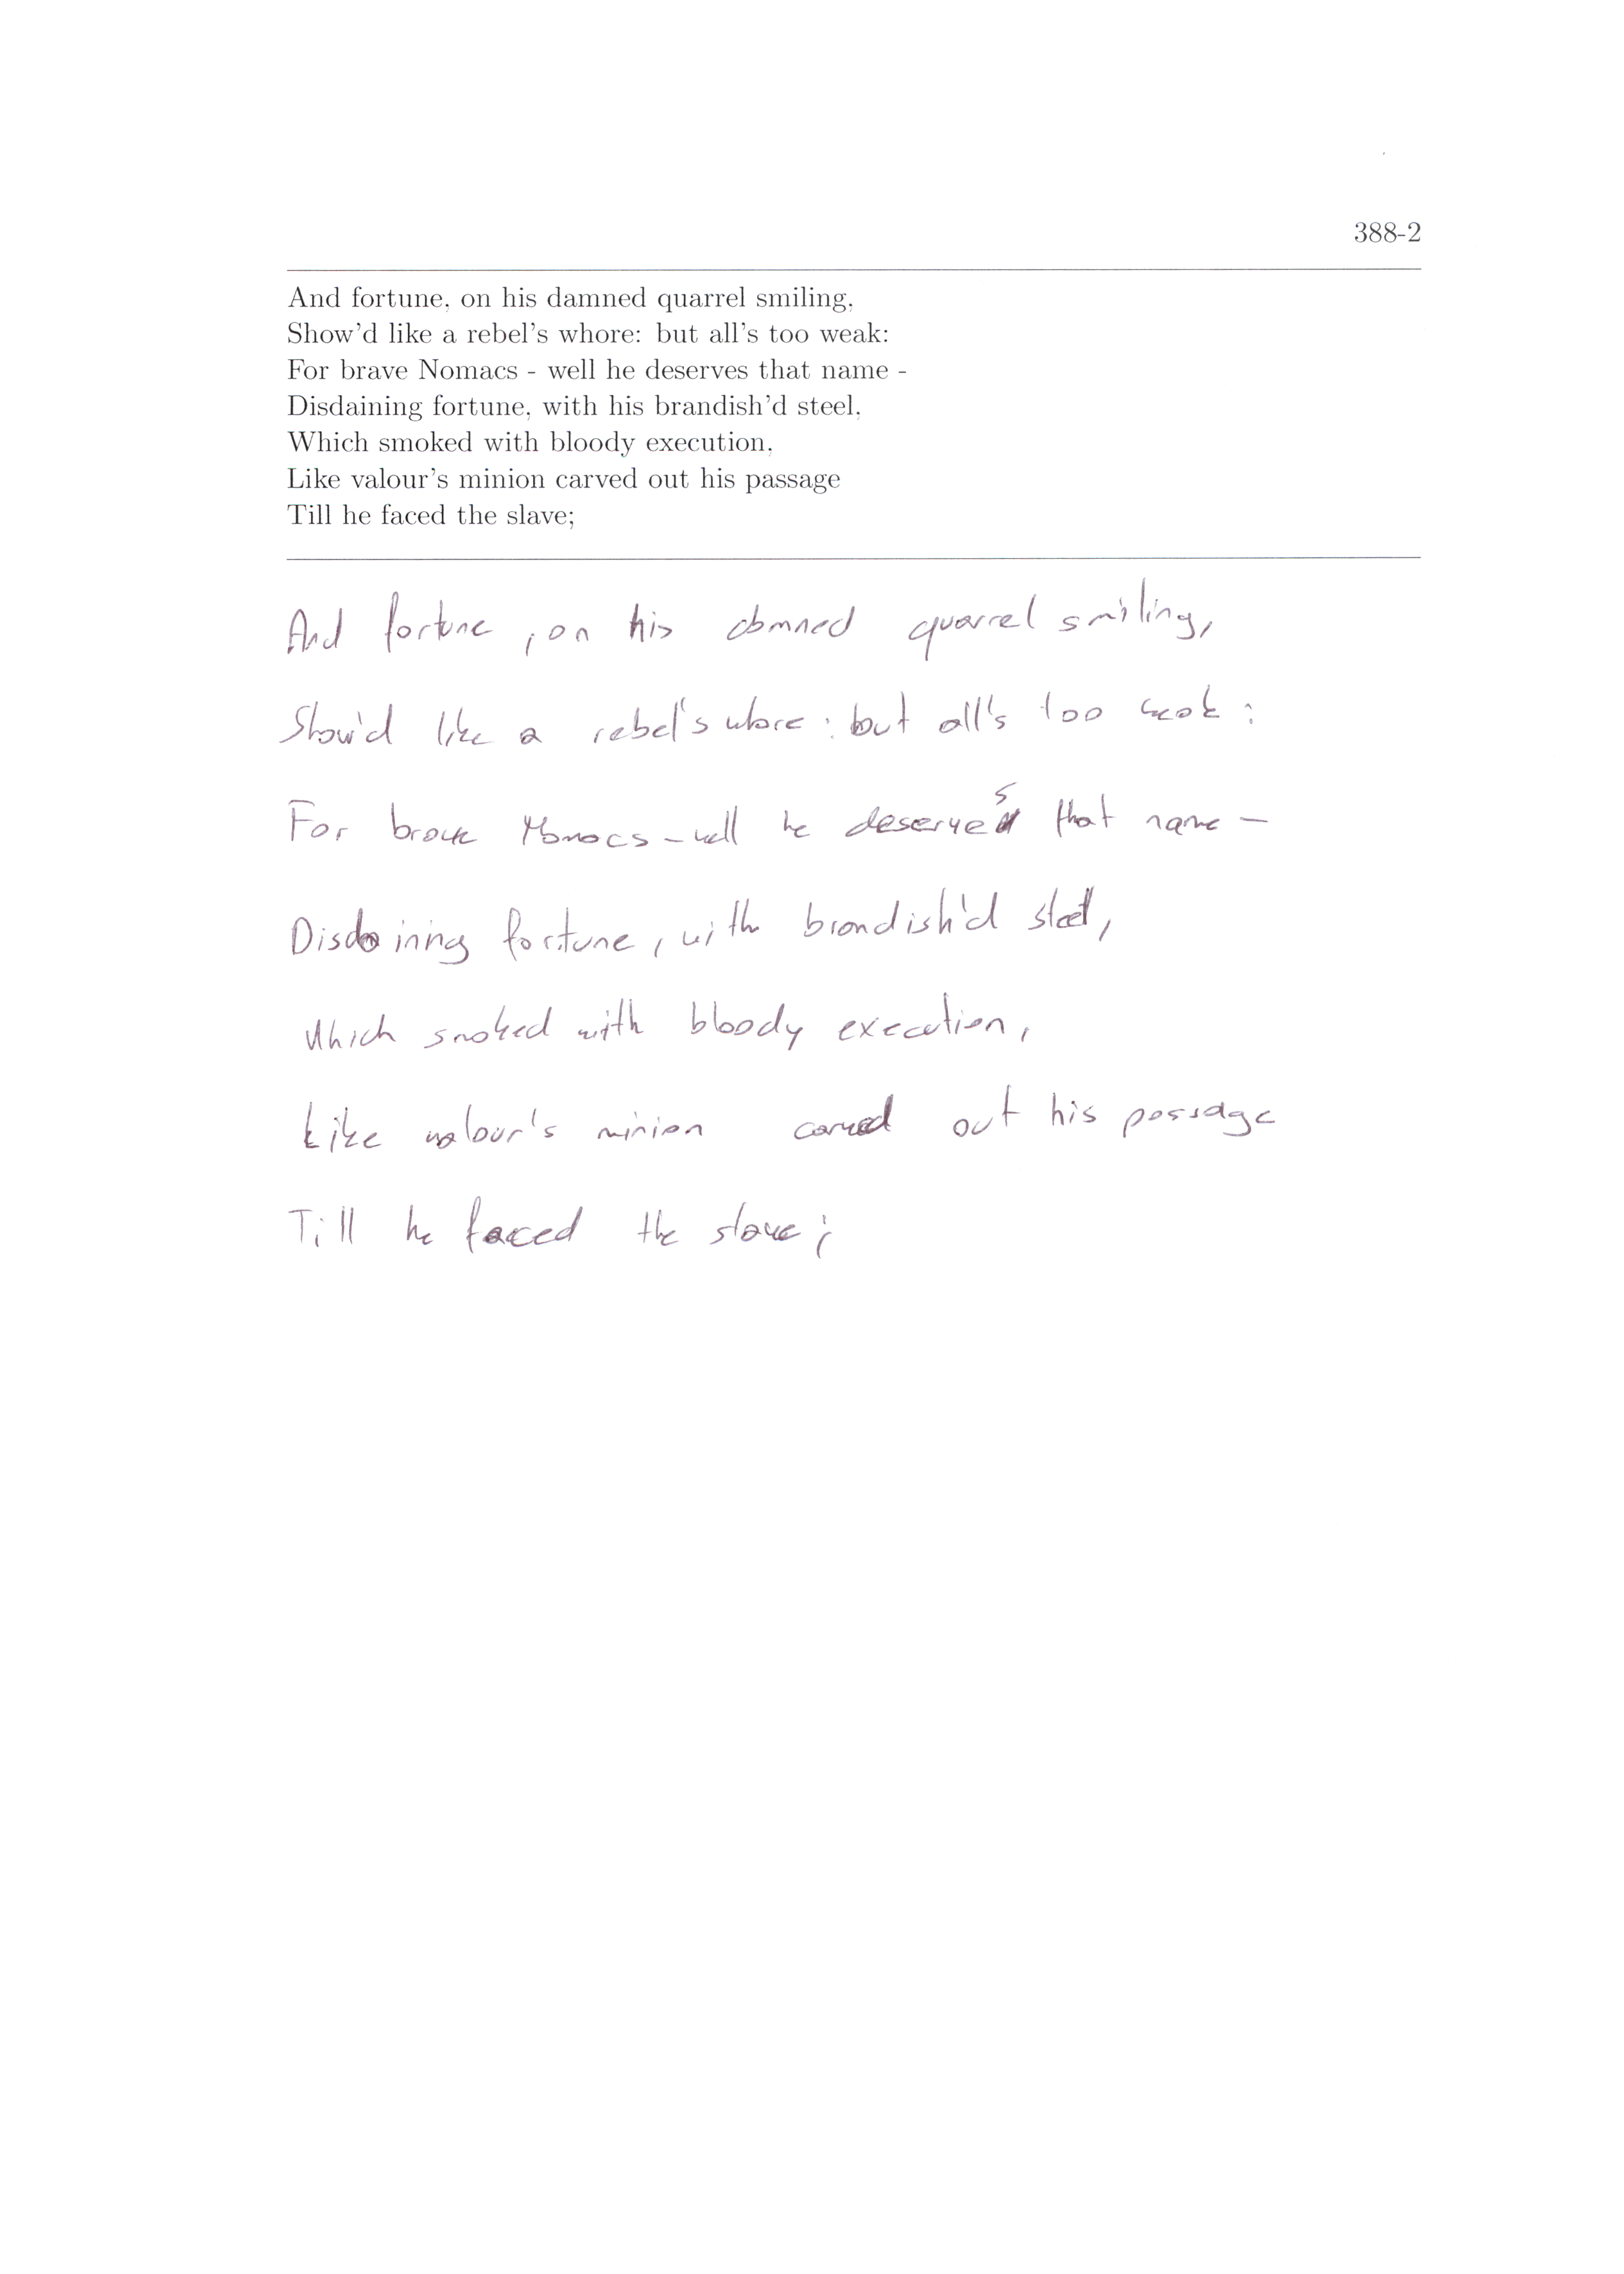 388-2
And fortune, on his damned quarrel smiling,
Show'd like a rebel's whore: but all's too weak:
For brave Nomacs - well he deserves that name -
Disdaining fortune, with his brandish'd steel,
Which smoked with bloody execution,
Like valour's minion carved out his passage
Till he faced the slave;
And fortune, on his damned quarrel smiling,
Show'd like a rebel's whore: but all's too weak:
For brave Nomacs - well he deserves that name -
Disdaining fortune, with brandish'd steel,
Which smoked with bloody execution,
Like valour's minion carved out his passage
Till he faced the slave;